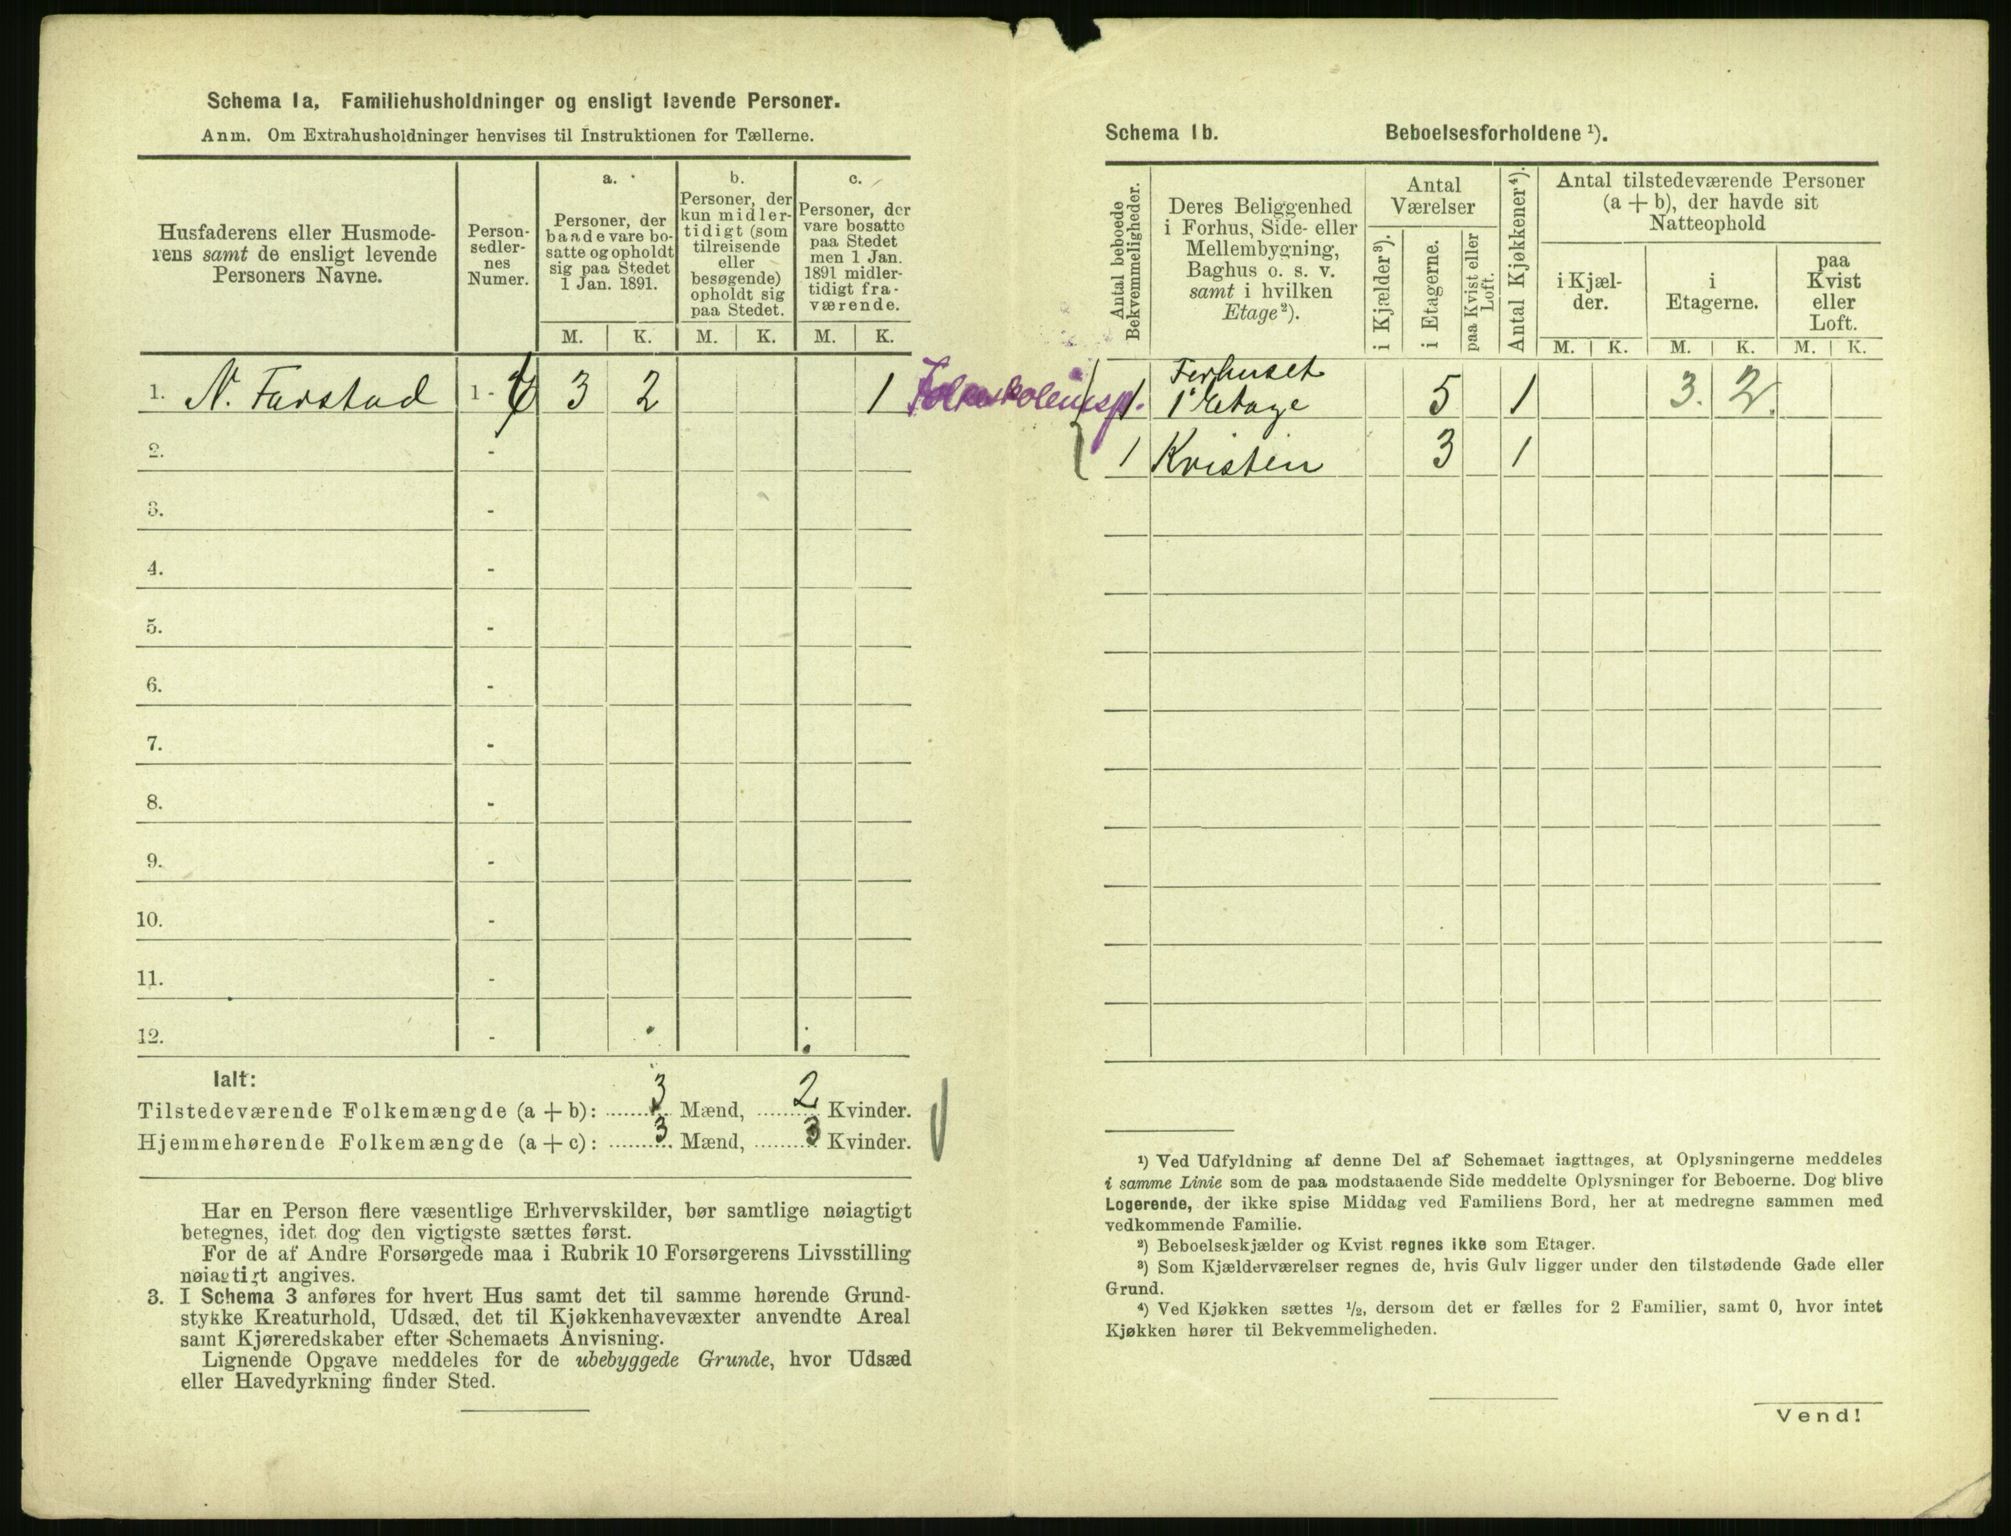 Schema 1a, Familiehusholdninger og ensligt levende Personer.
Anm. Om Extrahusholdninger henvises til Instruktionen for Tællerne.
Husfaderens eller Husmode-
rens samt de ensligt levende
Personers Navne.
Person-
sedler-
nes
Numer.
a.
Personer, der
baade vare bo-
satte og opholdt
sig paa Stedet
1 Jan. 1891.
b.
Personer, der
kun midler-
tidigt (som
tilreisende
eller
besøgende)
opholdt sig
paa Stedet.
c.
Personer, der
vare bosatte
paa Stedet
men 1 Jan.
1891 midler-
tidigt fra-
værende.
M. K. M. K. M. K.
1. N. Farstad 1 - 6 3 2 1 Folkeskoleinsp.
2. -
3. -
4. -
5. -
6. -
7. -
8. -
9. -
10. -
11. -
12. -
Ialt:
Tilstedeværende Folkemængde (a + b): 3 Mænd, 2 Kvinder.
Hjemmehørende Folkemængde (a + c): 3 Mænd, 3 Kvinder.
Har en Person flere væsentlige Erhvervskilder, bør samtlige nøiagtigt
betegnes, idet dog den vigtigste sættes først.
For de af Andre Forsørgede maa i Rubrik 10 Forsørgerens Livsstilling
nøiagtigt angives.
3. I Schema 3 anføres for hvert Hus samt det til samme hørende Grund-
stykke Kreaturhold, Udsæd, det til Kjøkkenhavevæxter anvendte Areal
samt Kjøreredskaber efter Schemaets Anvisning.
Lignende Opgave meddeles for de ubebyggede Grunde, hvor Udsæd
eller Havedyrkning finder Sted.
Schema 1b. Beboelsesforholdene ¹).
Antal beboede
Bekvemmeligheder.
Deres Beliggenhed
i Forhus, Side- eller
Mellembygning,
Baghus o. s. v.
samt i hvilken
Etage²).
Antal
Værelser
i Kjælder³).
i Etagerne.
paa Kvist eller
Loft.
Antal Kjøkkener⁴).
Antal tilstedeværende Personer
(a + b), der havde sit
Natteophold
i Kjæl-
der.
i
Etagerne.
paa
Kvist
eller
Loft.
M. K. M. K. M. K.
1 Forhuset
1' Etage 5 1 3. 2.
1 Kvisten 3 1
¹) Ved Udfyldning af denne Del af Schemaet iagttages, at Oplysningerne meddeles
i samme Linie som de paa modstaaende Side meddelte Oplysninger for Beboerne. Dog blive
Logerende, der ikke spise Middag ved Familiens Bord, her at medregne sammen med
vedkommende Familie.
²) Beboelseskjælder og Kvist regnes ikke som Etager.
³) Som Kjælderværelser regnes de, hvis Gulv ligger under den tilstødende Gade eller
Grund.
⁴) Ved Kjøkken sættes ½, dersom det er fælles for 2 Familier, samt 0, hvor intet
Kjøkken hører til Bekvemmeligheden.
Vend!